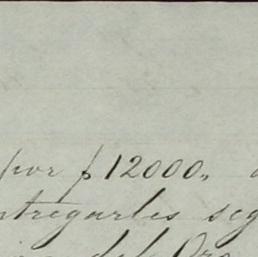 por $12000,, 
entregarles seg
del Oro